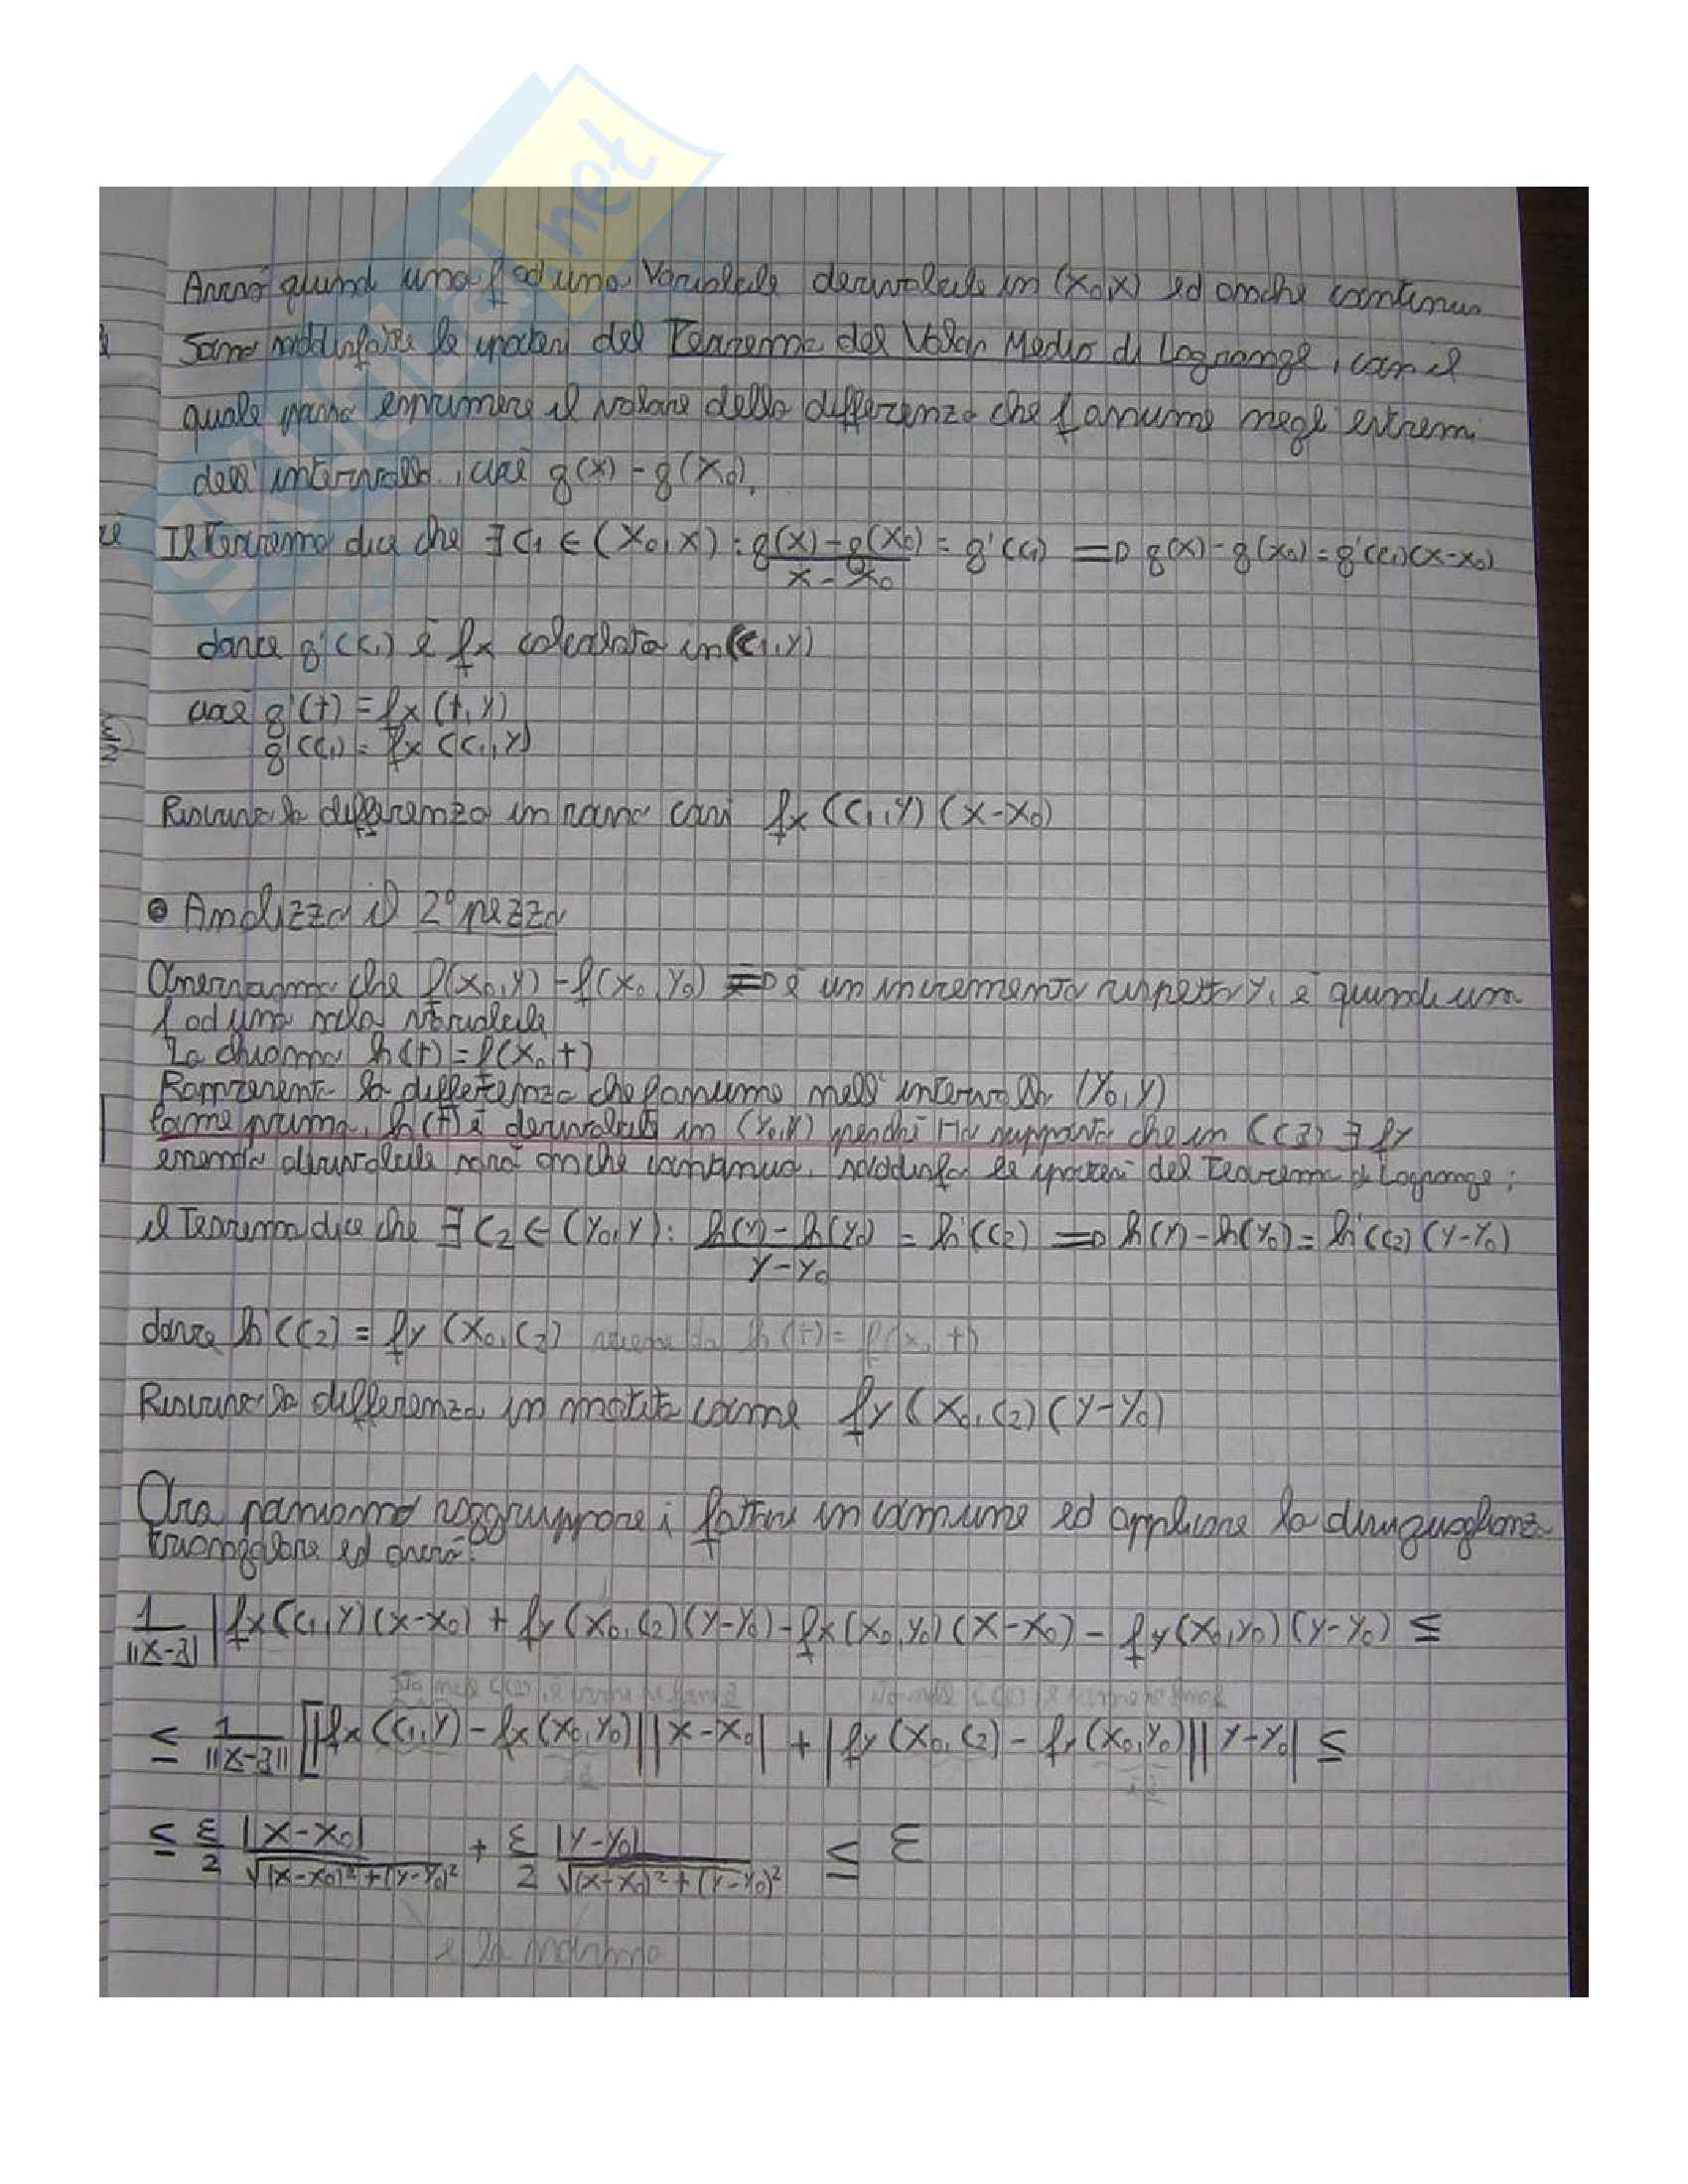 SKUOLA.net
Avrò quindi una f ad una variabile derivabile in (x₀,x) ed anche continua
Sono soddisfatte le ipotesi del Teorema del Valor Medio di Lagrange, con il
quale posso esprimere il valore della differenza che f assume negli estremi
dell'intervallo, cioè g(x) - g(x₀).
Il Teorema dice che ∃ c₁ ∈ (x₀,x) : g(x) - g(x₀) / x - x₀ = g'(c₁) ⇒ g(x) - g(x₀) = g'(c₁)(x-x₀)
dove g'(c₁) è fx calcolata in (c₁,y)
cioè g'(t) = fx (t,y)
g'(c₁) = fx (c₁,y)
Riscrivo la differenza in rosso così fx (c₁,y) (x-x₀)
• Analizzo il 2° pezzo
Osserviamo che f(x₀,y) - f(x₀,y₀) ⇒ è un incremento rispetto y, è quindi una
f ad una sola variabile
La chiamo h(t) = f(x₀,t)
Rappresenta la differenza che f assume nell'intervallo (y₀,y)
Come prima, h(t) è derivabile in (y₀,y) perché ho supposto che in ∃ fy
essendo derivabile sarà anche continua. soddisfa le ipotesi del Teorema di Lagrange:
il Teorema dice che ∃ c₂ ∈ (y₀,y) : h(y) - h(y₀) / y - y₀ = h'(c₂) ⇒ h(y) - h(y₀) = h'(c₂) (y-y₀)
dove h'(c₂) = fy (x₀,c₂) h(t) = f(x₀,t)
Riscrivo la differenza in matita come fy (x₀,c₂) (y-y₀)
Ora possiamo raggruppare i fattori in comune ed applicare la disuguaglianza
triangolare ed avrò:
1/||x-z|| |fx(c₁,y)(x-x₀) + fy (x₀,c₂)(y-y₀) - fx(x₀,y₀)(x-x₀) - fy(x₀,y₀)(y-y₀) ≤
≤ 1/||x-z|| [|fx (c₁,y) - fx(x₀,y₀)||x-x₀| + |fy (x₀,c₂) - fy(x₀,y₀)||y-y₀| ≤
≤ ε/2 |x-x₀|/√(x-x₀)²+(y-y₀)² + ε/2 |y-y₀|/√(x-x₀)²+(y-y₀)² ≤ ε